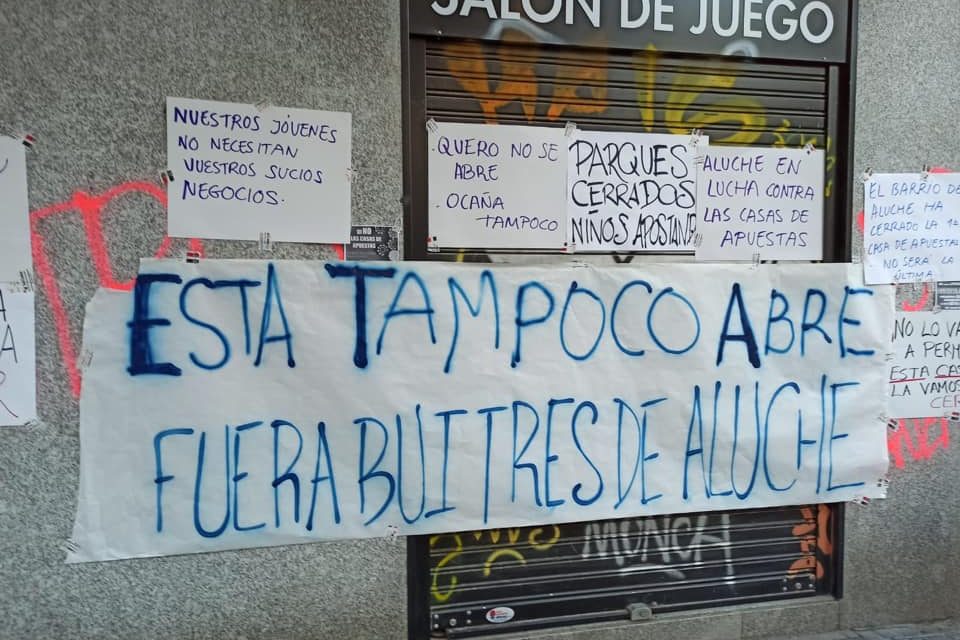 SALÓN DE JUEGO
NUESTROS JÓVENES
NO NECESITAN
VUESTROS SUCIOS
NEGOCIOS.
. QUERO NO SE
ABRE
. OCAÑA
TAMPOCO
PARQUES
CERRADOS
NIÑOS APOSTANDO
ALUCHE EN
LUCHA CONTRA
LAS CASAS DE
APUESTAS
EL BARRIO DE
ALUCHE HA
CERRADO LA 1ª
CASA DE APUESTAS
NO SERÁ LA
ÚLTIMA
NO
LAS CASAS DE
APUESTAS
ESTA TAMPOCO ABRE
FUERA BUITRES DE ALUCHE
NO LO VA
A PERM
ESTA CAS
LA VAMOS
CER
MUNCH